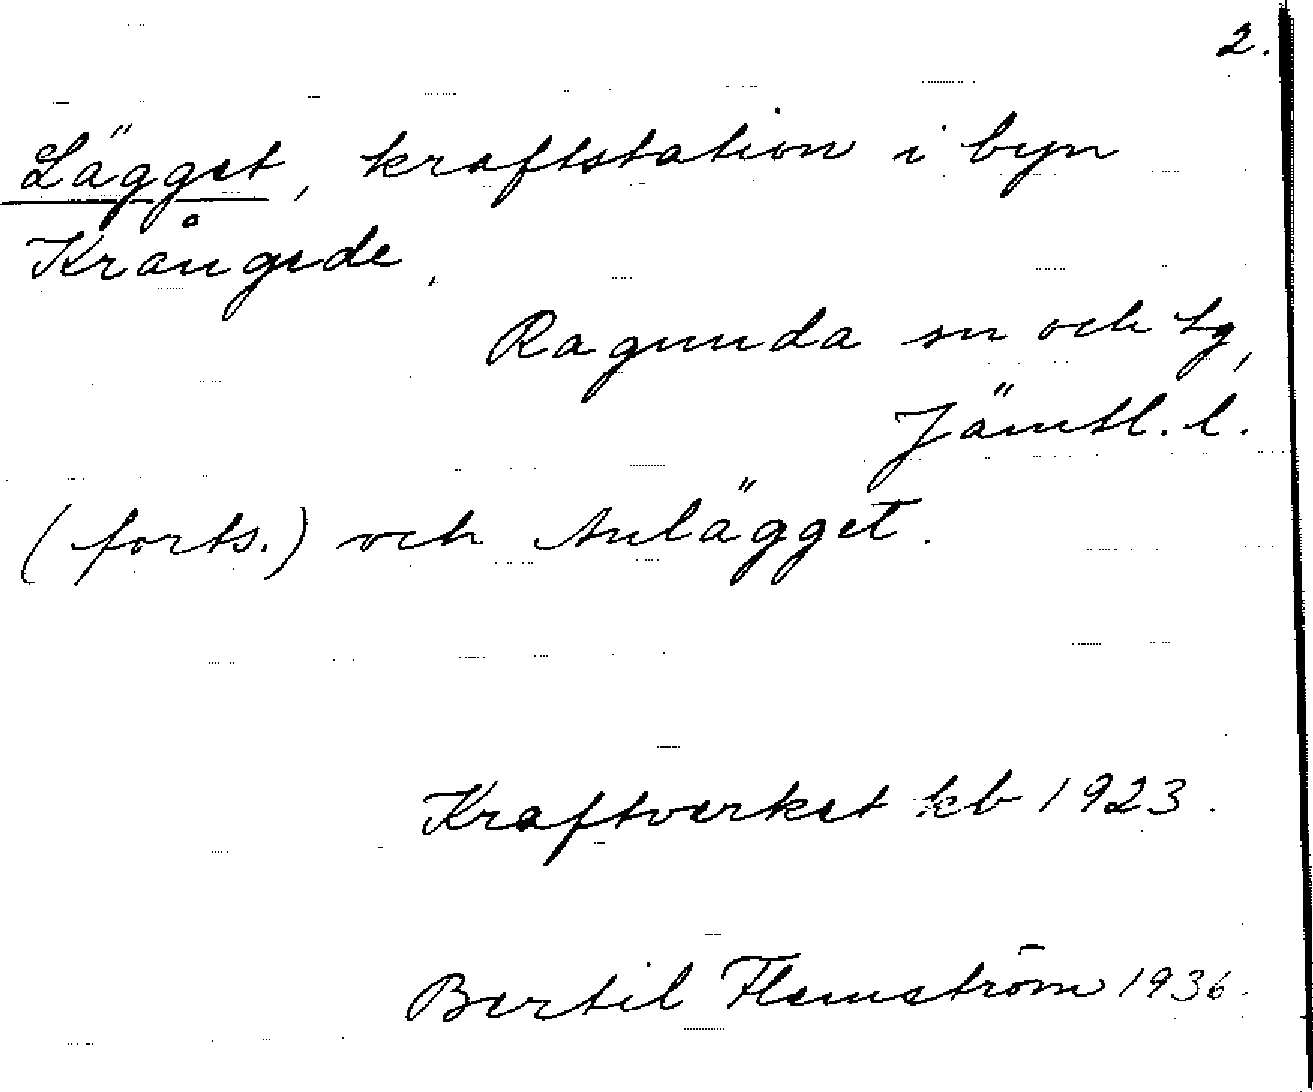 2.
Lägget, kraftstation i byn
Krångede,
Ragunda sn och tg,
Jämtl. l.
(forts.) och Anlägget.
Kraftverket kb 1923.
Bertil Flemström 1936.